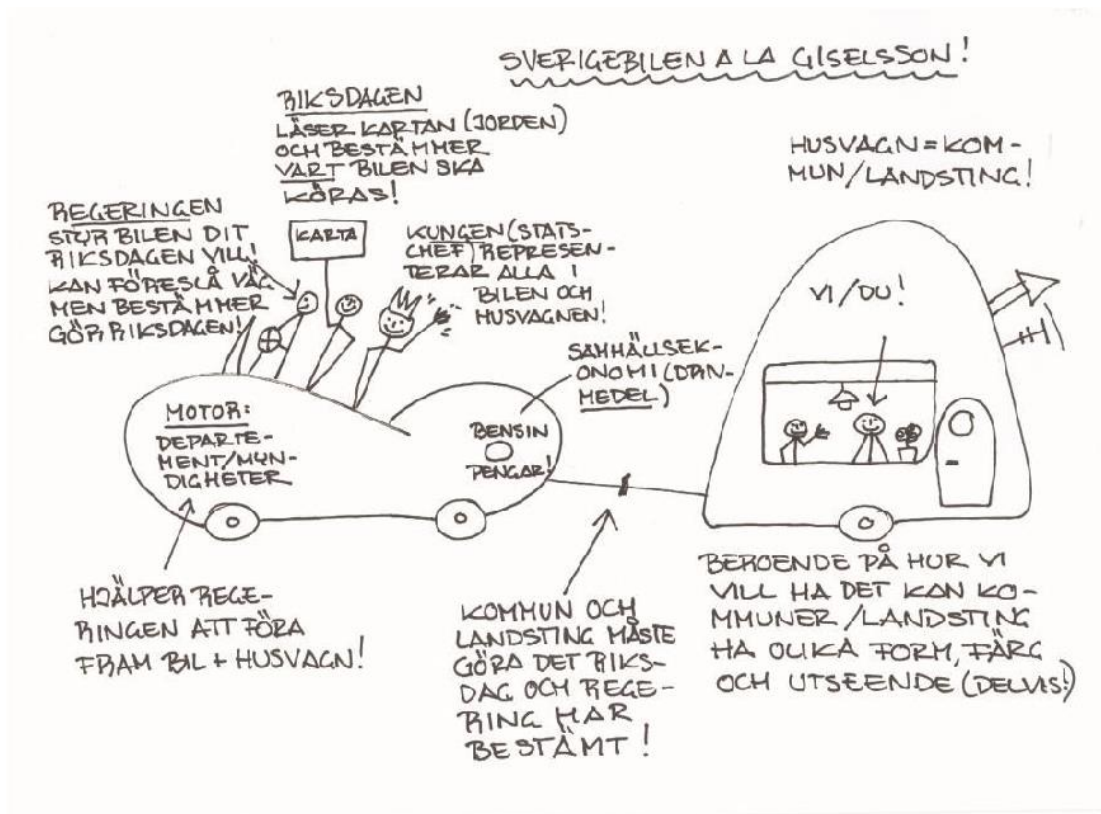 SVERIGEBILEN A LA GISELSSON!
RIKSDAGEN
LÄSER KARTAN (JORDEN)
OCH BESTÄMMER
VART BILEN SKA
KÖRAS!
HUSVAGN = KOM-
MUN/LANDSTING!
REGERINGEN
STYR BILEN DIT
RIKSDAGEN VILL!
KAN FÖRESLÅ VÄG
MEN BESTÄMMER
GÖR RIKSDAGEN!
KARTA
KUNGEN (STATS-
CHEF) REPRESEN-
TERAR ALLA I
BILEN OCH
HUSVAGNEN!
VI/DU!
SAMHÄLLSEK-
ONOMI (DRIV-
MEDEL)
MOTOR:
DEPARTE-
MENT/MYN-
DIGHETER
BENSIN
PENGAR!
HJÄLPER REGE-
RINGEN ATT FÖRA
FRAM BIL + HUSVAGN!
KOMMUN OCH
LANDSTING MÅSTE
GÖRA DET RIKS-
DAG OCH REGE-
RING HAR
BESTÄMT!
BEROENDE PÅ HUR VI
VILL HA DET KAN KO-
MMUNER/LANDSTING
HA OLIKA FORM, FÄRG
OCH UTSEENDE (DELVIS!)